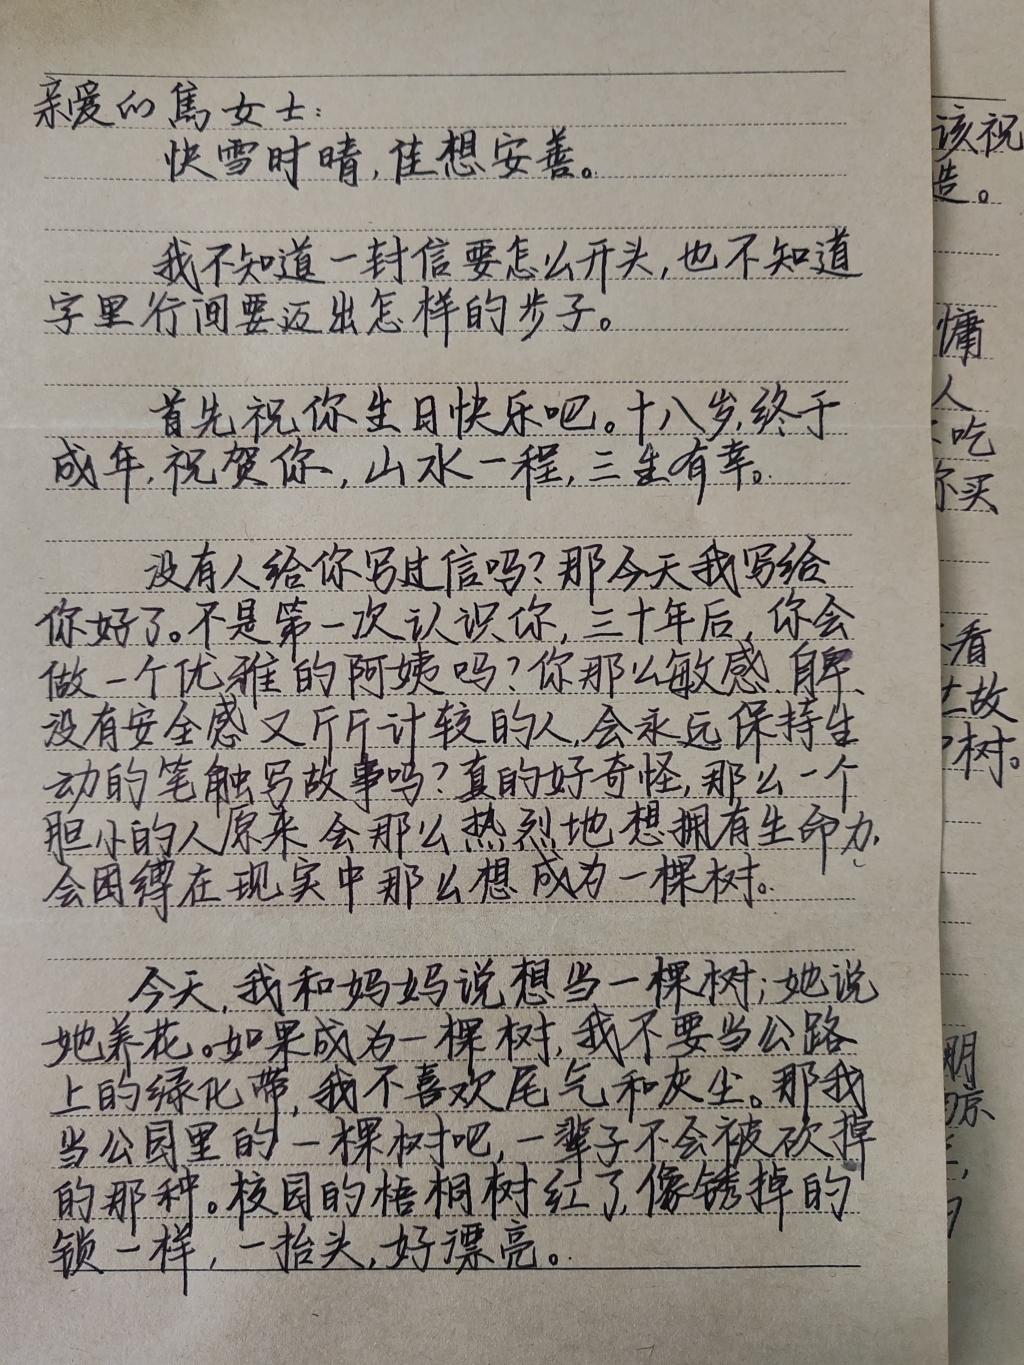 亲爱的篶女士：
快雪时晴，佳想安善。
我不知道一封信要怎么开头，也不知道
字里行间要迈出怎样的步子。
首先祝你生日快乐吧。十八岁，终于
成年，祝贺你，山水一程，三生有幸。
没有人给你写过信吗？那今天我写给
你好了。不是第一次认识你，三十年后，你会
做一个优雅的阿姨吗？你那么敏感、自卑、
没有安全感又斤斤计较的人，会永远保持生
动的笔触写故事吗？真的好奇怪，那么一个
胆小的人原来会那么热烈地想拥有生命力，
会困缚在现实中那么想成为一棵树。
今天，我和妈妈说想当一棵树；她说
她养花。如果成为一棵树，我不要当公路
上的绿化带，我不喜欢尾气和灰尘。那我
当公园里的一棵树吧，一辈子不会被砍掉
的那种。校园的梧桐树红了，像锈掉的
锁一样，一抬头，好漂亮。
该祝
造。
慵
人
吃
你买
看
故
树。
朋